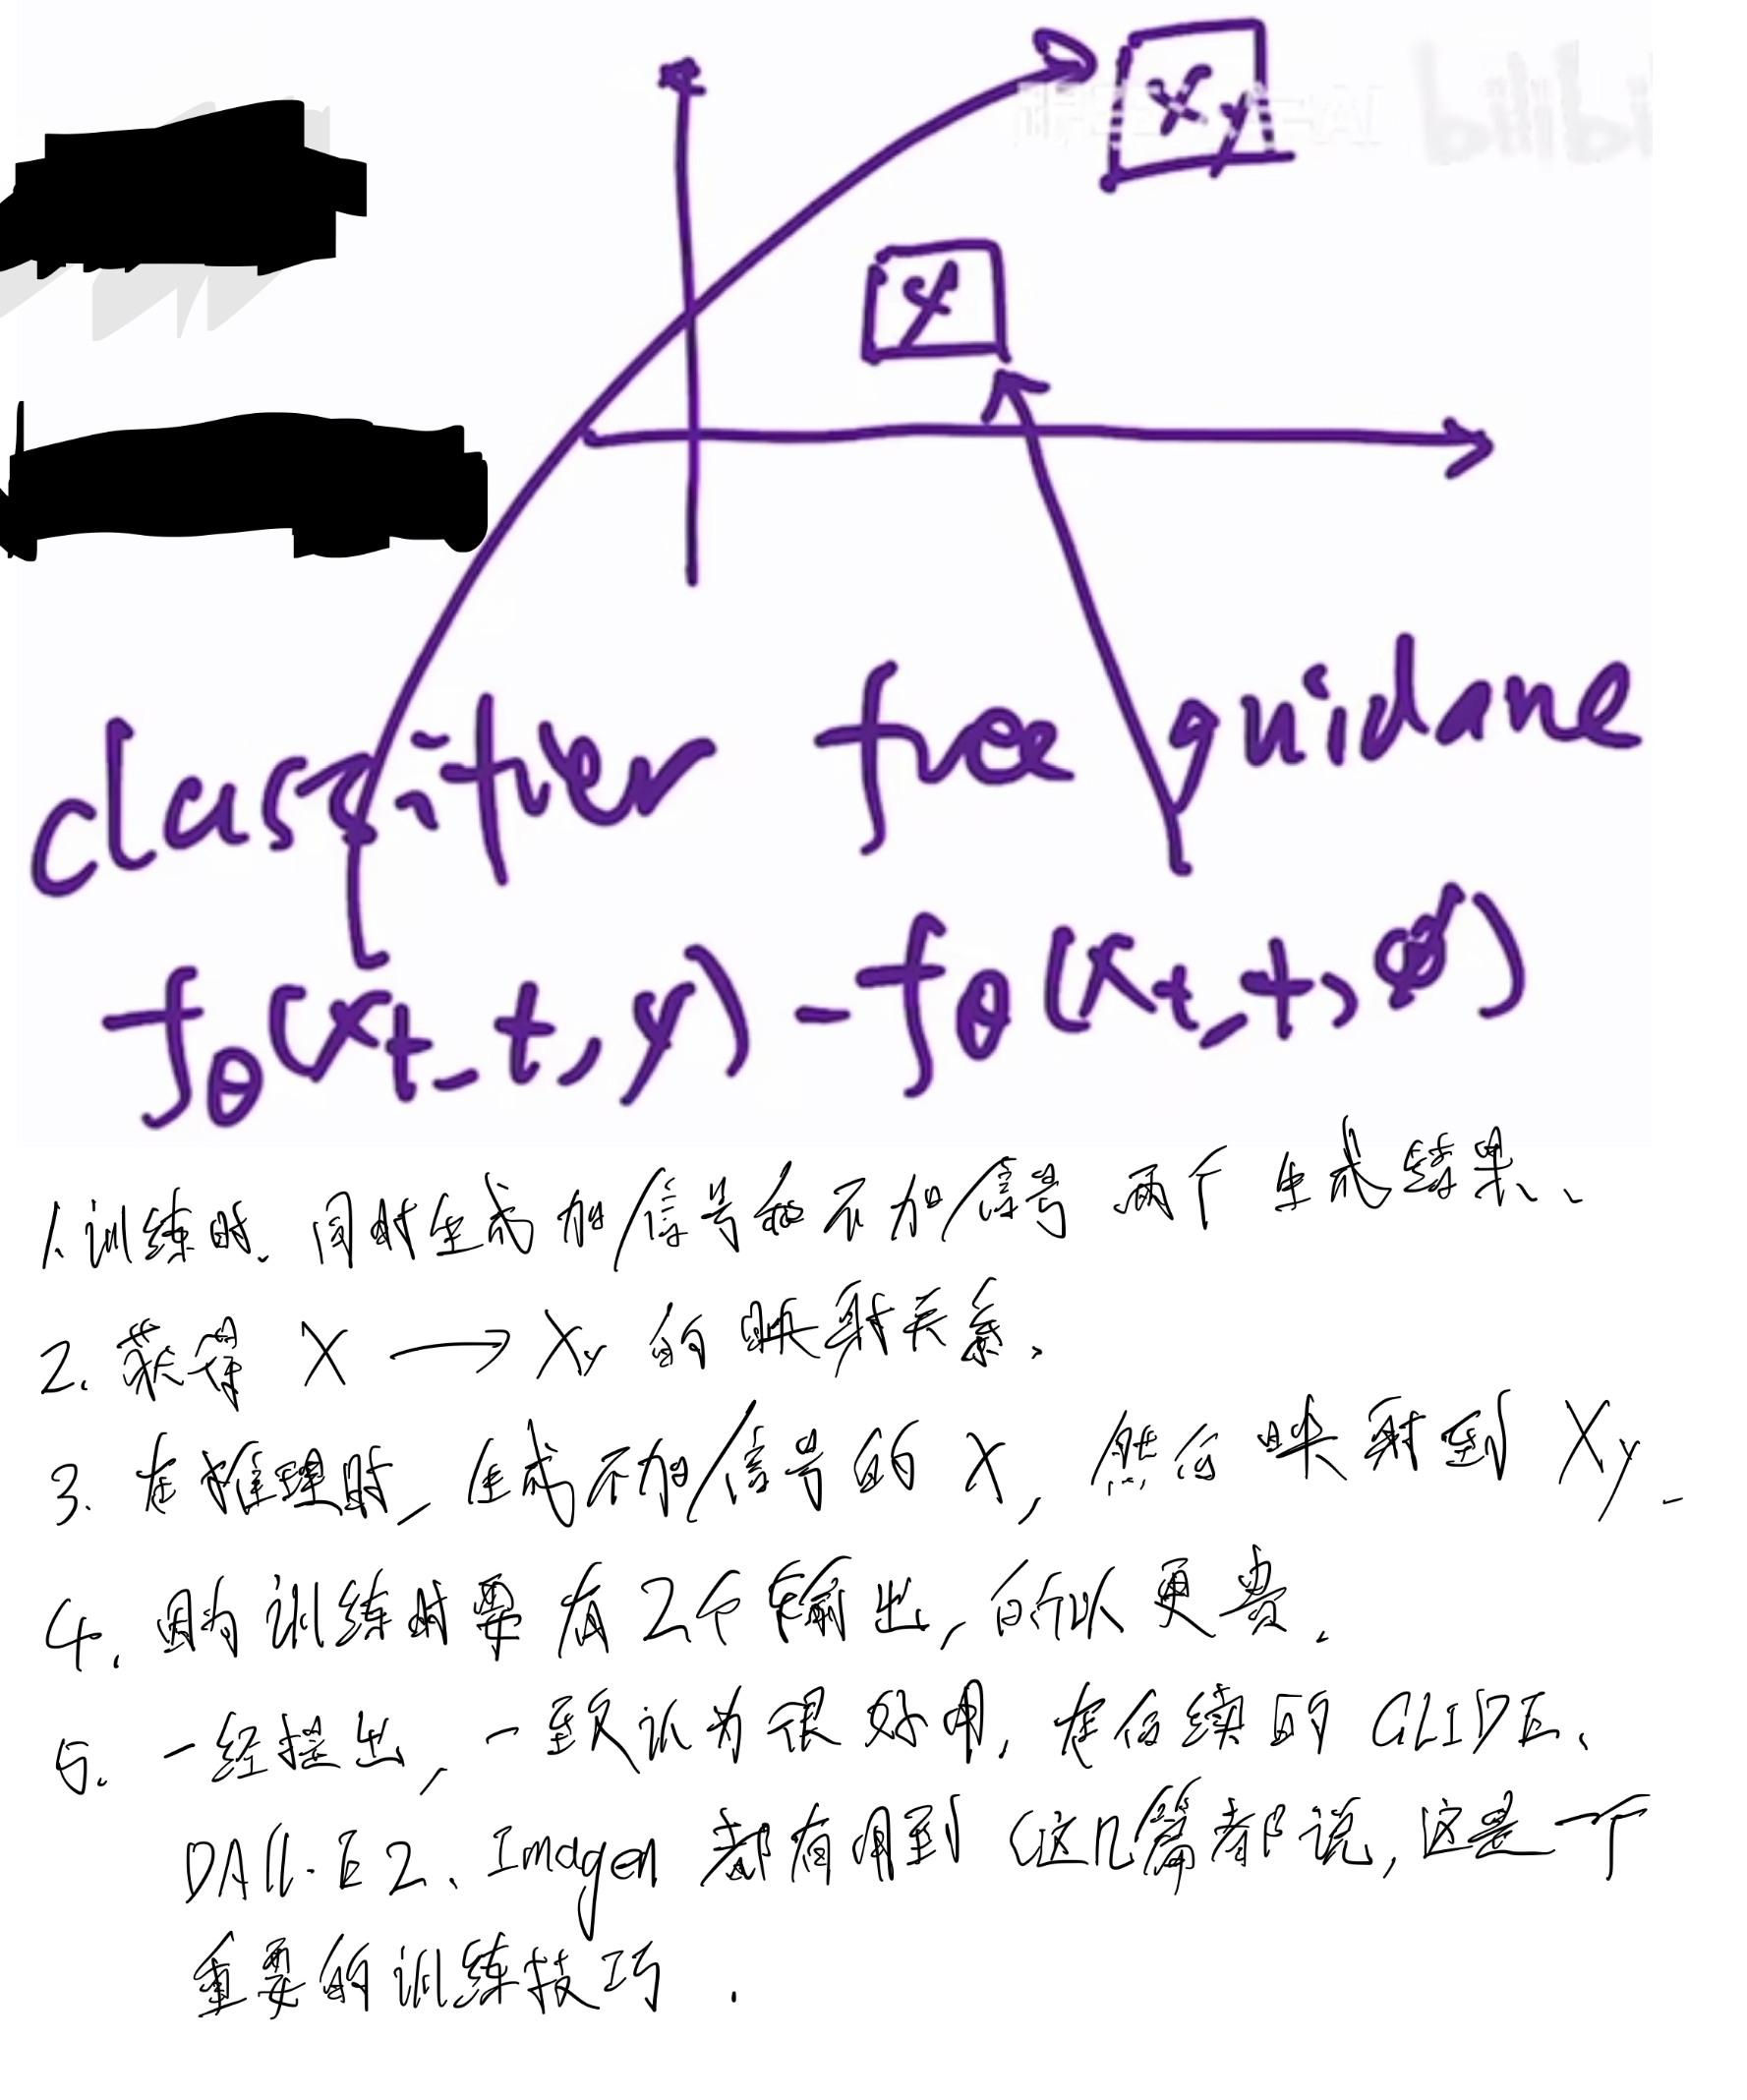 x_y
bilibi
x
classifier free guidane
f_θ(x_t, t, y) - f_θ(x_t, t, ∅)
1. 训练时、同时生成加信号和不加信号两个生成结果、
2. 获得 X → X_y 的映射关系.
3. 在推理时, 生成不加信号的 X, 然后映射到 X_y.
4. 因为训练时要有2个输出, 所以更费.
5. 一经提出, 一致认为很好用, 在后续的 GLIDE、
DALL·E2、Imagen 都有用到 (这几篇都说, 这是一个
重要的训练技巧.